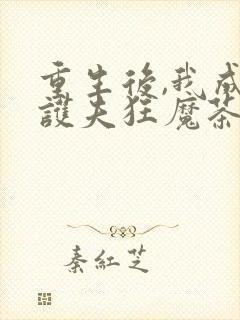 重生後,我成
護夫狂魔茶
秦紅芝